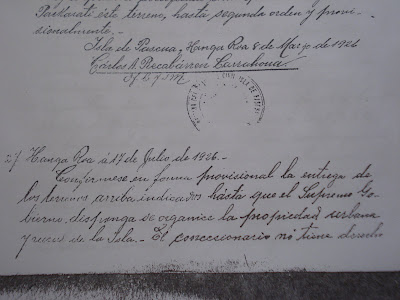 Parkarati éste terreno, hasta segunda orden y provi-
sionalmente.-
Isla de Pascua, Hanga Roa 8 de Marzo de 1926
Cárlos A. Recabárren Larrahona
S. D. y S. M.
2/ Hanga Roa á 17 de Julio de 1926.-
Confirmese en forma provisional la entrega de
los terrenos arriba indicados hasta que el Supremo Go-
bierno disponga se organice la propiedad urbana
y rural de la Isla.- El conceccionario no tiene derecho